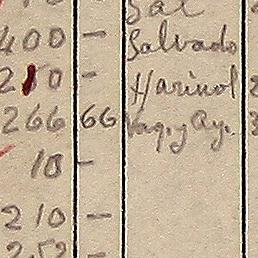 Sal
400 - Salvado
210 - Harinol
266 66 Vaq. y Ay.
10 -
210 -
252 -